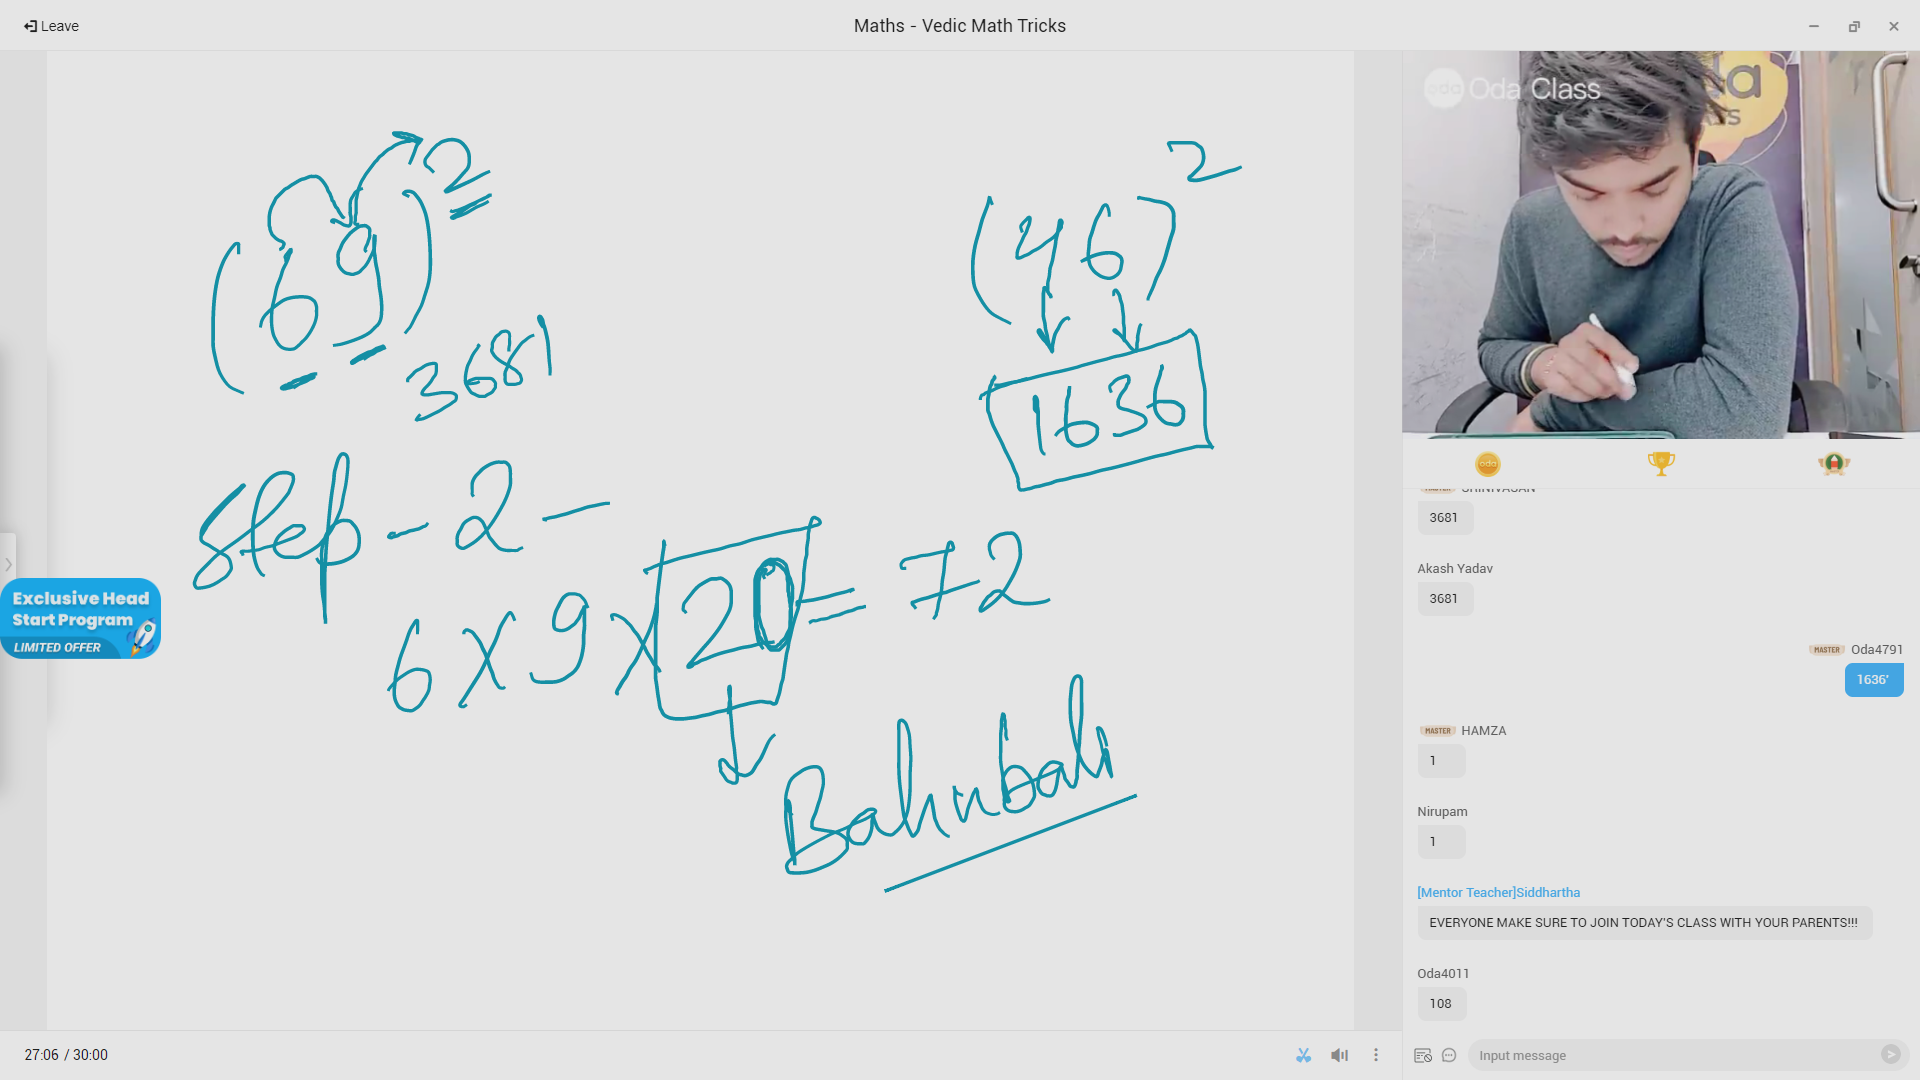 Leave
Maths - Vedic Math Tricks
Oda Class
(69)²
(46)²
3681
1636
Step - 2 -
6 x 9 x 20 = 72
Bahubali
Exclusive Head
Start Program
LIMITED OFFER
SHRINIVASAN
3681
Akash Yadav
3681
MASTER Oda4791
1636'
MASTER HAMZA
1
Nirupam
1
[Mentor Teacher]Siddhartha
EVERYONE MAKE SURE TO JOIN TODAY'S CLASS WITH YOUR PARENTS!!!
Oda4011
108
27:06 / 30:00
Input message